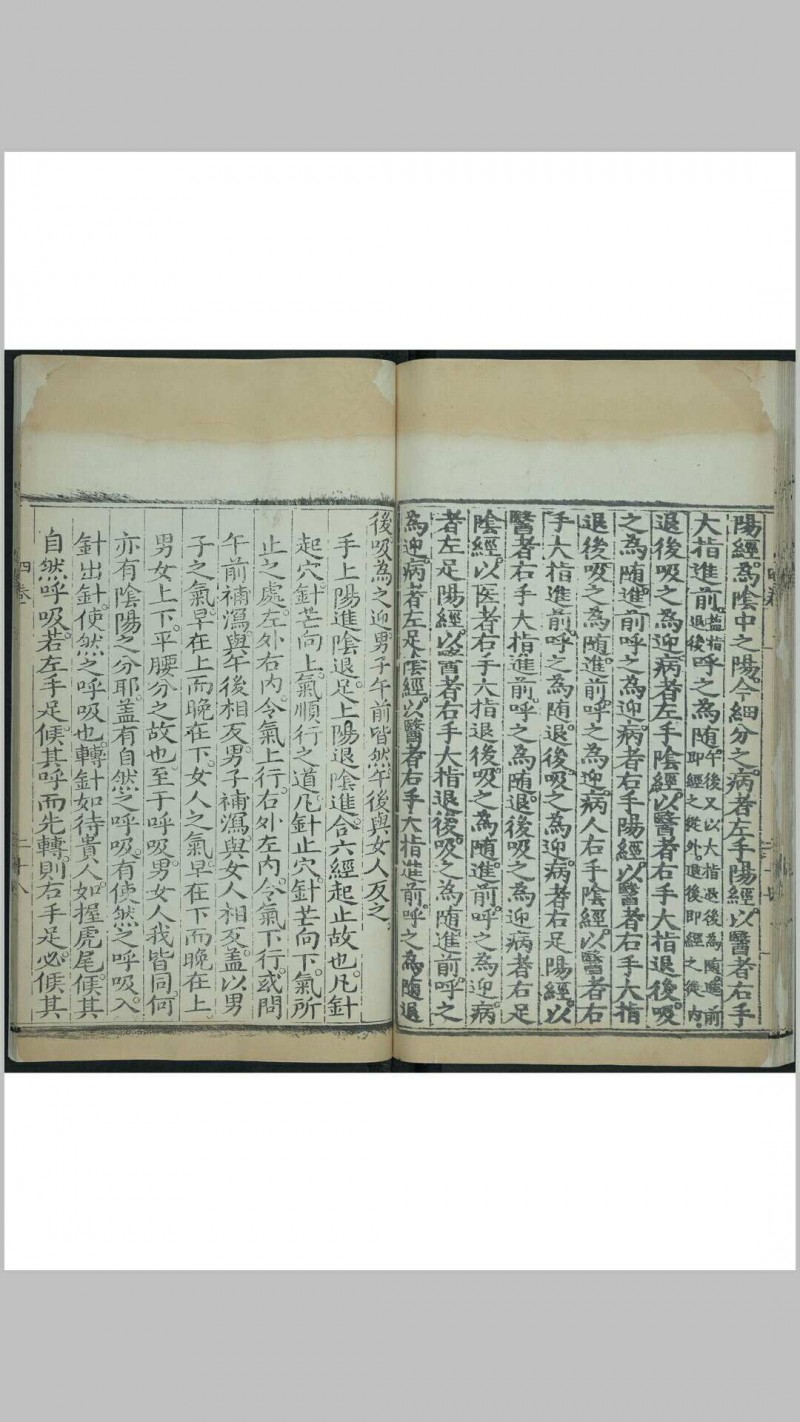 陽經。為陰中之陽。今細分之。病者左手陽經。以醫者右手
大指進前。蓋指退後呼之為隨。午後又以大指退後為隨。進前即經之從外。退後即經之從內。
退後吸之為迎。病者左手陰經。以醫者右手大指退後。吸
之為隨。進前呼之為迎。病者右手陽經。以醫者右手大指
退後吸之為隨。進前。呼之為迎。病人右手陰經。以醫者右
手大指進前。呼之為隨。退後。吸之為迎。病者右足陽經。以
醫者右手大指進前。呼之為隨。退後吸之為迎病者右足
陰經。以医者右手大指退後。吸之為隨。進前。呼之為迎。病
者左足陽經。以醫者右手大指退後。吸之為隨進前。呼之
為迎。病者左足陰經。以醫者右手大指進前。呼之為隨退
後吸為之迎男子午前皆然午後與女人反之。
手上陽進陰退。足上陽退陰進合六經起止故也。凡針
起穴。針芒向上。氣順行之道。凡針止穴。針芒向下。氣所
止之處。左外右內。令氣上行。右外左內。令氣下行。或問
午前補瀉與午後相反。男子補瀉與女人相反。蓋以男
子之氣。早在上而晚在下。女人之氣。早在下而晚在上。
男女上下。平腰分之故也。至于呼吸。男女人我皆同。何
亦有陰陽之分耶。蓋有自然之呼吸。有使然之呼吸。入
針出針。使然之呼吸也。轉針如待貴人。如握虎尾。候其
自然呼吸。若左手足。候其呼而先轉。則右手足。必候其
四卷
二十八